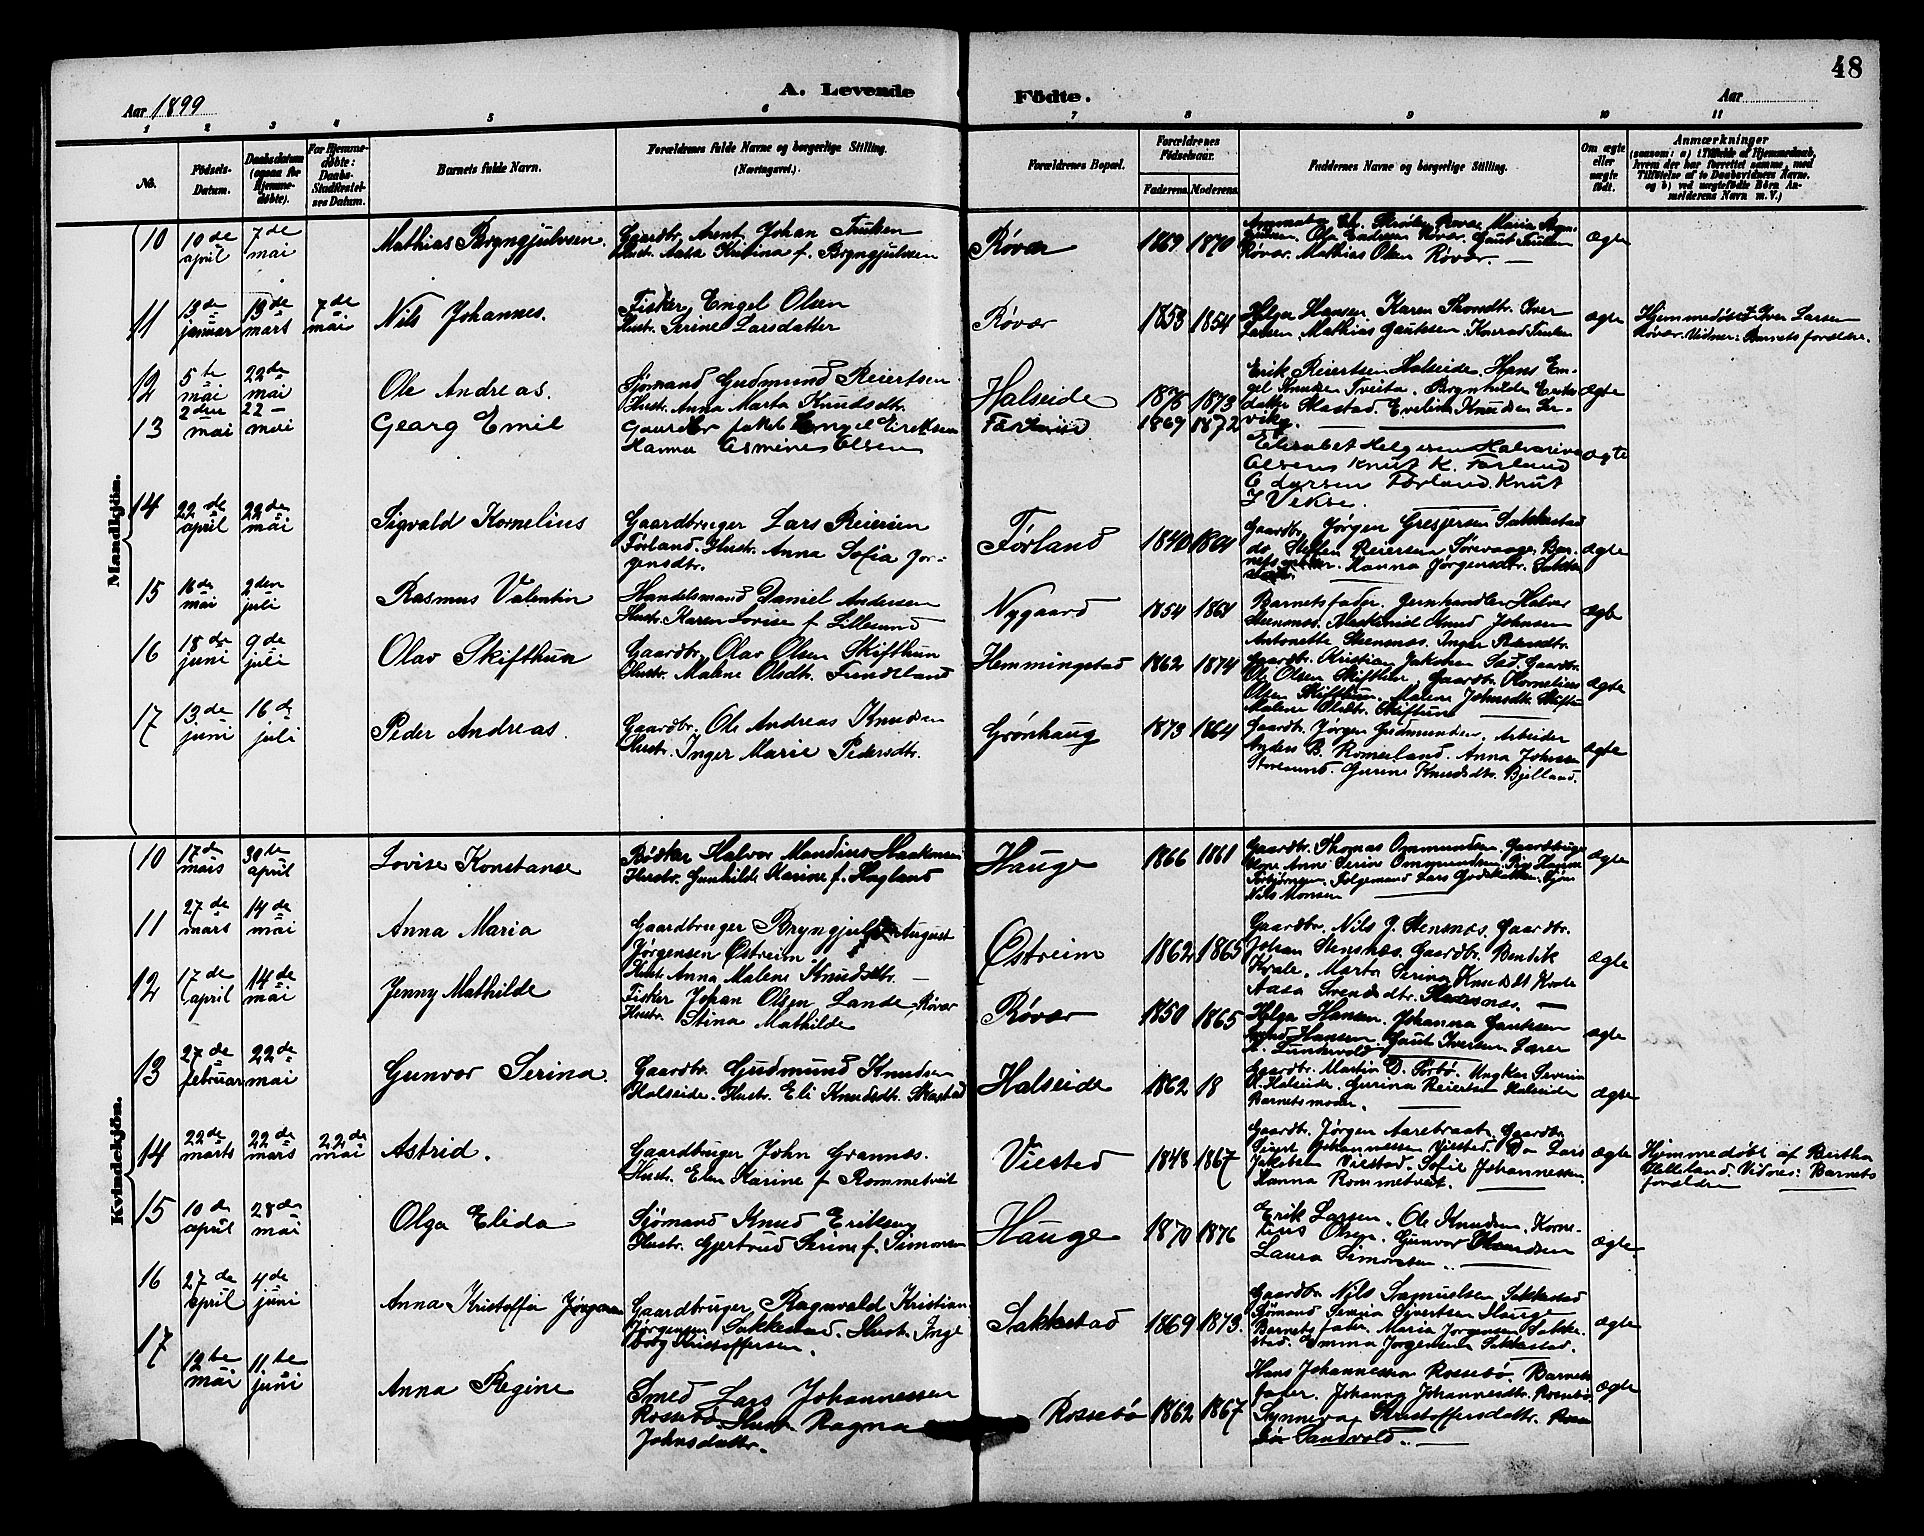 48
A. Levende Födte.
Aar 1899
Aar
1 2 3 4 5 6 7 8 9 10 11
No.
Födsels-Datum.
Daabsdatum (ogsaa for Hjemmedøbte).
For Hjemmedøbte: Daabs-Stadfæstelses Datum.
Barnets fulde Navn.
Forældrenes fulde Navne og borgerlige Stilling. (Næringsvei.)
Forældrenes Bopæl.
Forældrenes Födselsaar.
Faderens. Moderens.
Faddernes Navne og borgerlige Stilling.
Om ægte eller uægte födt.
Anmærkninger
Mandkjön.
10 10de april 7de mai Mathias Bryngjulvsen. Gaardbr. Arent Johan
Hustr. Aasa Kristina f. Bryngjulvsen Røvær 1869 1870 ægte
Røvær. Mathias Olsen Røvær. —
11 13de januar 19de mars 7de mai Nils Johannes. Fisker Engel Olsen
Hustr. Serine Larsdatter Røvær 1853 1854 Helga Hansen, Karen Thomdtr. Iver
Larsen, Mathias Gautsen, Konrad ægte Hjemmedøbt. Iver Larsen
Røvær. Vidner: Barnets forældre.
12 5te mai 22de mai Ole Andreas. Sjømand Gudmund Reiertsen
Hustr. Anna Marta Knudsdtr. Halseide 1876 1873 Erik Reiertsen Halseide. Hans En-
gel Knudsen Tveita, Brynhilde Eriks-
datter Skastad. Eveline Knudsen ægte
13 2den mai 22 – mai Georg Emil Engel Eriksen
Hanna Asmine Olsen 1869 1872
Elisabet Helgesen Halvarine
Olsens Knut K. Førland
E Larsen Førland. Knut
J Vikse. ægte
14 22de april 22de mai Sigvald Kornelius Gaardbruger Lars Reiersen
Førland. Hustr. Anna Sofia Jør-
gensdtr. Førland 1840 Gaardbr. Jørgen Gresjersen Sakkestad
do. Steffen Reiersen Sørevaage. Bar-
Hanna Jørgensdtr. ægte
15 16de mai 2den juli Rasmus Valentin Handelsmand Daniel Andersen
Hustr. Karen Lovise f. Lillesund Nygaard 1854 1864 Barnets fader. Jernhandler Halvor
Steensnæs. Knud Johnsen
Antonette Steensnæs. Inger ægte
16 18de juni 9de juli Olav Skifthun Gaardbr. Olav Olsen Skifthun
Hustr. Malene Olsdtr. Hemmingstad 1862 1874 Gaardbr. Kristian Jakobsen Stad. Gaardbr.
Ole Olsen Skifthun, Gaardbr. Kornelius
Olsen Skifthun. Malene Johnsdtr. Skifthun
Malene Olsdtr. Skifthun ægte
17 13de juni 16de juli Peder Andreas. Gaardbr. Ole Andreas Knudsen
Hustr. Inger Marie Pedersdtr. Grønhaug 1873 1864 Gaardbr. Jørgen Gudmundsen, Arbeider
Anders B. Romseland. Anna Johnsen
Storesund. Gurine Knudsdtr. Bjelland. ægte
Kvindekjön.
10 17de mars 30te april Lovise Konstanse Bødker Halvor Mandius Haakonsen
Hustr. Gunhilde Karine f. Hagland Hauge 1866 1861 Gaardbr. Thomas Ommundsen, Gaardbruger-
kone Anne Serine Ommundsen, Pige Hanna
Torbjørnsen, Følgemand Lars
Nils Monsen ægte
11 27de mars 14de mai Anna Maria Gaardbruger Bryngjulf August
Jørgensen Østreim
Hust. Anna Malene Knudsdtr. — Østreim 1862 1865 Gaardbr. Nils J. Stensnæs, Gaardbr.
Johan Stensnæs. Gaardbr. Bendik
Kvale, Marta Serina Knudsdt. Kvale
Aasa Svendsdtr. Stensnæs. — ægte
12 17de april 14de mai Jenny Mathilde Fisker Johan Olsen Lande, Røvær
Hustr. Stina Mathilde Røvær 1850 1865 Helga Hansen. Johanna Gautsen
Hansen. Gaut Iversen. ægte
13 27de februar 22de mai Gunvor Serina. Gaardbr. Gudmund Knudsen
Halseide. Hustr. Eli Knudsdtr. Skastad Halseide 1862 18 Gaardbr. Martin D. Ungkar Severin
K. Halseide. Gurina Reiertsen Halseide
Barnets moder. ægte
14 22de marts 22de mars 22de mai Astrid. Gaardbruger John Grannæs.
Hustr. Elen Karine f. Rommetveit Viestad 1848 1867 Gaardbr. Jørgen Aaretraat. Gaardbr.
Sivert Johannessen Viestad. Do Lars
Jakobsen Viestad. Sofie Johannessen
Hanna Rommetveit. ægte Hjemmedøbt af Bertha
Helleland. Vidner: Barnets
forældre
15 10de april 28de mai Olga Elida Sjømand Knud Eriksen
Hustr. Gjertrud Serine f. Simonsen Hauge 1870 1876 Erik Larsen. Ole Knudsen. Korne-
lius Olsen. Gunvor Knudsen
Laura Simonsen. ægte
16 27de april 4de juni Anna Kristoffa Jørgensen Gaardbruger Ragnvald Kristian
Jørgensen Sakkestad. Hustr. Inge
borg Kristoffersen. Sakkestad 1869 1873. Gaardbr. Nils Samuelsen Sakkestad
Sjømand Severin Sivertsen Hauge
Barnets fader, Maria Jørgensen Sakke-
stad. Emma Jørgensen Sakkestad. ægte
17 12te mai 11.te juni Anna Regine Smed Lars Johannessen
Rossebø. Hust. Ragna
Johnsdattr. Rossebø 1862 1867 Hans Johannessen Rossebø, Barnets
fader, Johanna Johannesdtr. Rossebø
Synneva Kristoffersdattr. Rosse
bø Sandvold. — ægte